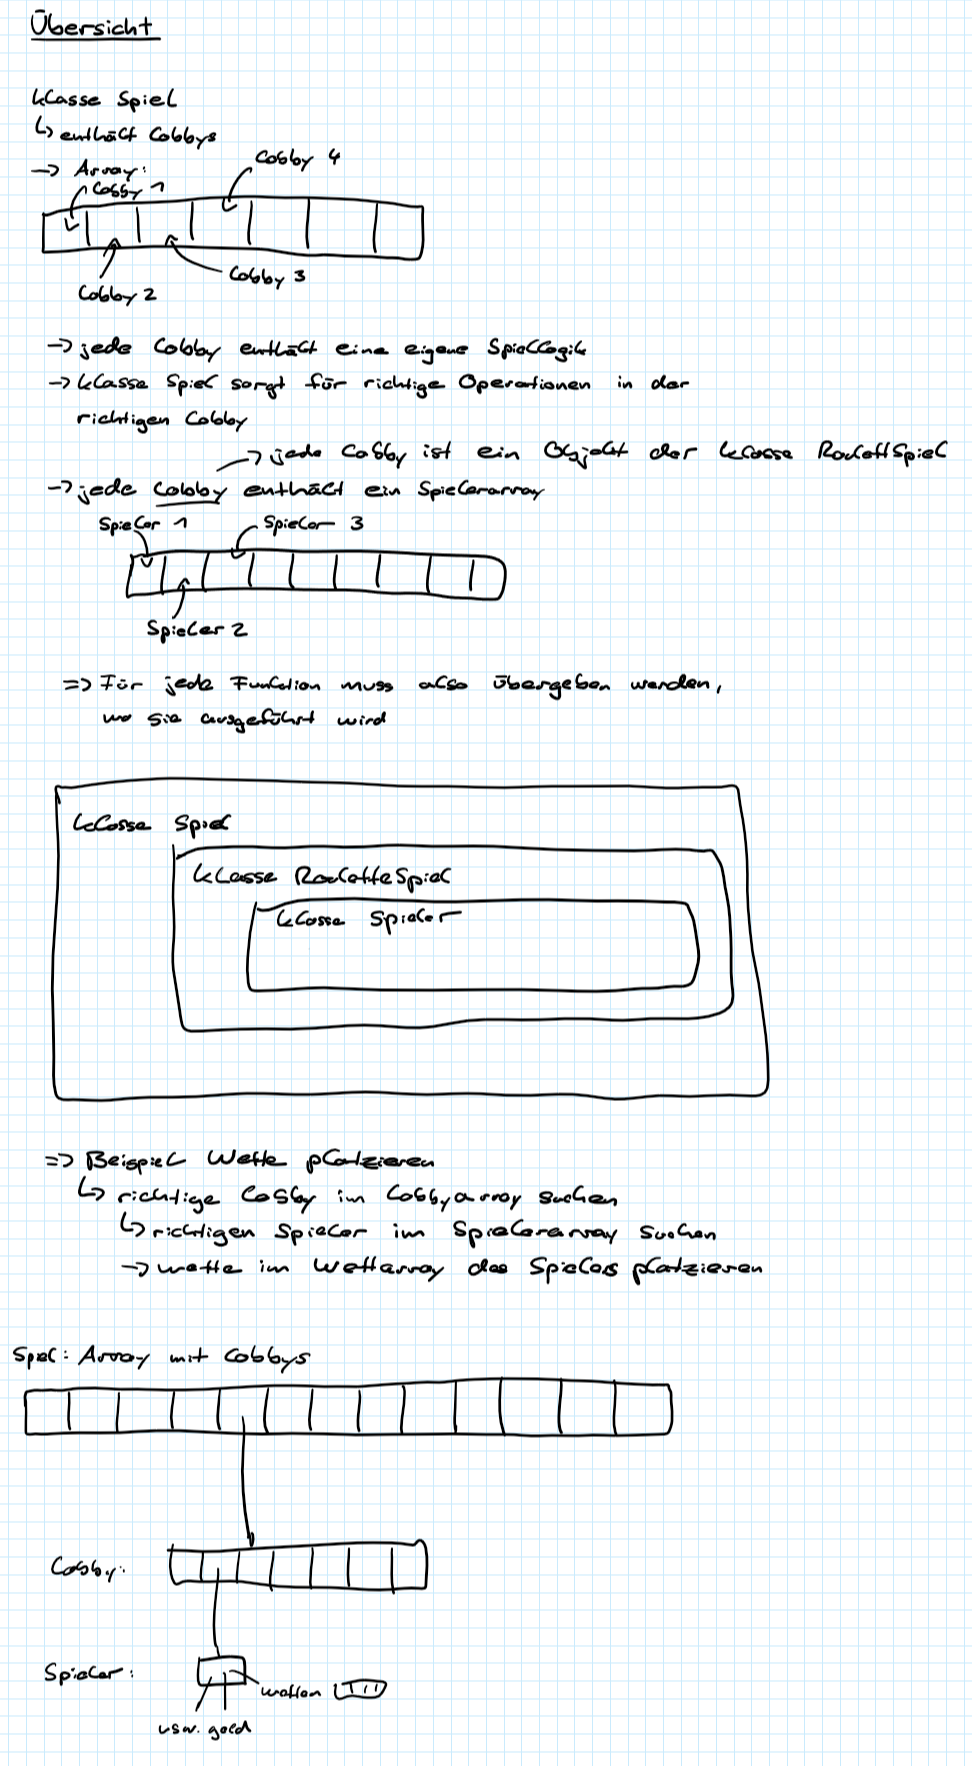 Übersicht
Klasse Spiel
↳ enthält Lobbys
→ Array:
Lobby 4
Lobby 1
Lobby 3
Lobby 2
→ jede Lobby enthält eine eigene Spiellogik
→ Klasse Spiel sorgt für richtige Operationen in der
richtigen Lobby
→ jede Lobby ist ein Objekt der Klasse RoulettSpiel
→ jede Lobby enthält ein Spielerarray
Spieler 1
Spieler 3
Spieler 2
=> Für jede Funktion muss also übergeben werden,
wo sie ausgeführt wird
Klasse Spiel
Klasse RouletteSpiel
Klasse Spieler
=> Beispiel Wette platzieren
↳ richtige Lobby im Lobbyarray suchen
↳ richtigen Spieler im Spielerarray suchen
→ wette im Wettarray des Spielers platzieren
Spiel: Array mit Lobbys
Lobby:
Spieler:
wetten
usw. geld